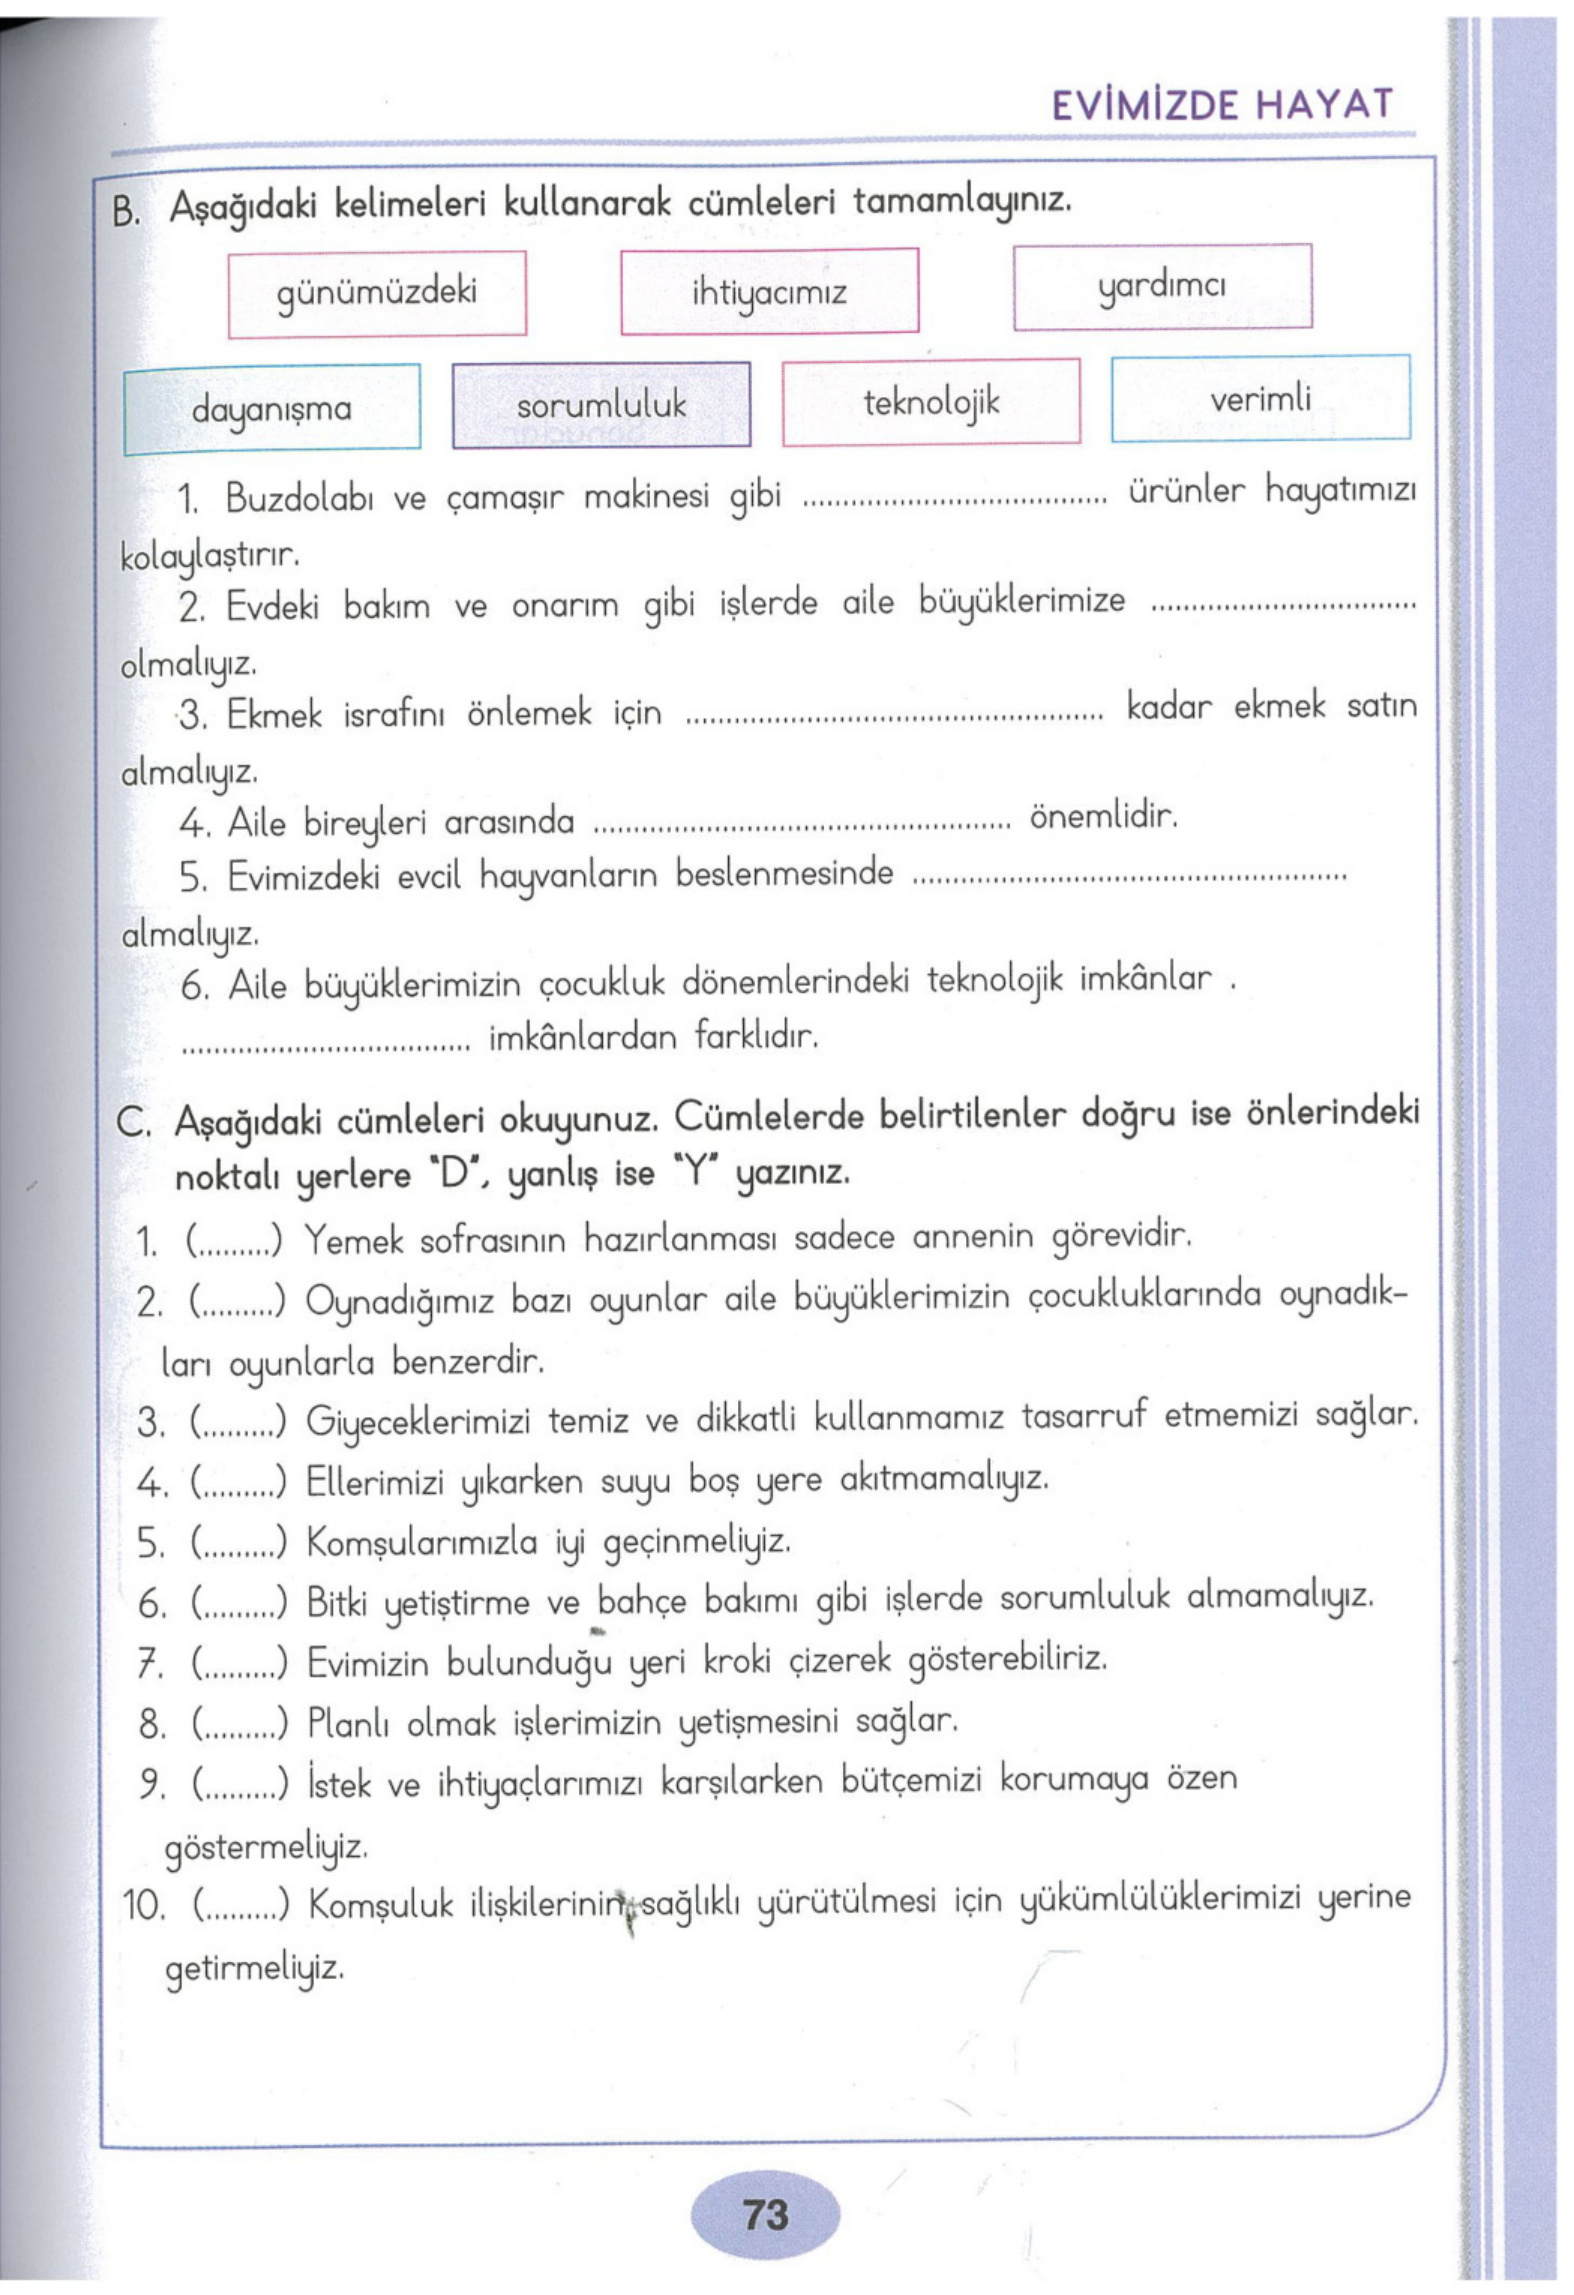 EVİMİZDE HAYAT
B. Aşağıdaki kelimeleri kullanarak cümleleri tamamlayınız.
günümüzdeki ihtiyacımız yardımcı
dayanışma sorumluluk teknolojik verimli
1. Buzdolabı ve çamaşır makinesi gibi .................................... ürünler hayatımızı
kolaylaştırır.
2. Evdeki bakım ve onarım gibi işlerde aile büyüklerimize ................................
olmalıyız.
3. Ekmek israfını önlemek için .................................................. kadar ekmek satın
almalıyız.
4. Aile bireyleri arasında .................................................. önemlidir.
5. Evimizdeki evcil hayvanların beslenmesinde ....................................................
almalıyız.
6. Aile büyüklerimizin çocukluk dönemlerindeki teknolojik imkânlar .
................................... imkânlardan farklıdır.
C. Aşağıdaki cümleleri okuyunuz. Cümlelerde belirtilenler doğru ise önlerindeki
noktalı yerlere "D", yanlış ise "Y" yazınız.
1. (.........) Yemek sofrasının hazırlanması sadece annenin görevidir.
2. (.........) Oynadığımız bazı oyunlar aile büyüklerimizin çocukluklarında oynadık-
ları oyunlarla benzerdir.
3. (.........) Giyeceklerimizi temiz ve dikkatli kullanmamız tasarruf etmemizi sağlar.
4. (.........) Ellerimizi yıkarken suyu boş yere akıtmamalıyız.
5. (.........) Komşularımızla iyi geçinmeliyiz.
6. (.........) Bitki yetiştirme ve bahçe bakımı gibi işlerde sorumluluk almamalıyız.
7. (.........) Evimizin bulunduğu yeri kroki çizerek gösterebiliriz.
8. (.........) Planlı olmak işlerimizin yetişmesini sağlar.
9. (.........) İstek ve ihtiyaçlarımızı karşılarken bütçemizi korumaya özen
göstermeliyiz.
10. (.........) Komşuluk ilişkilerinin sağlıklı yürütülmesi için yükümlülüklerimizi yerine
getirmeliyiz.
73